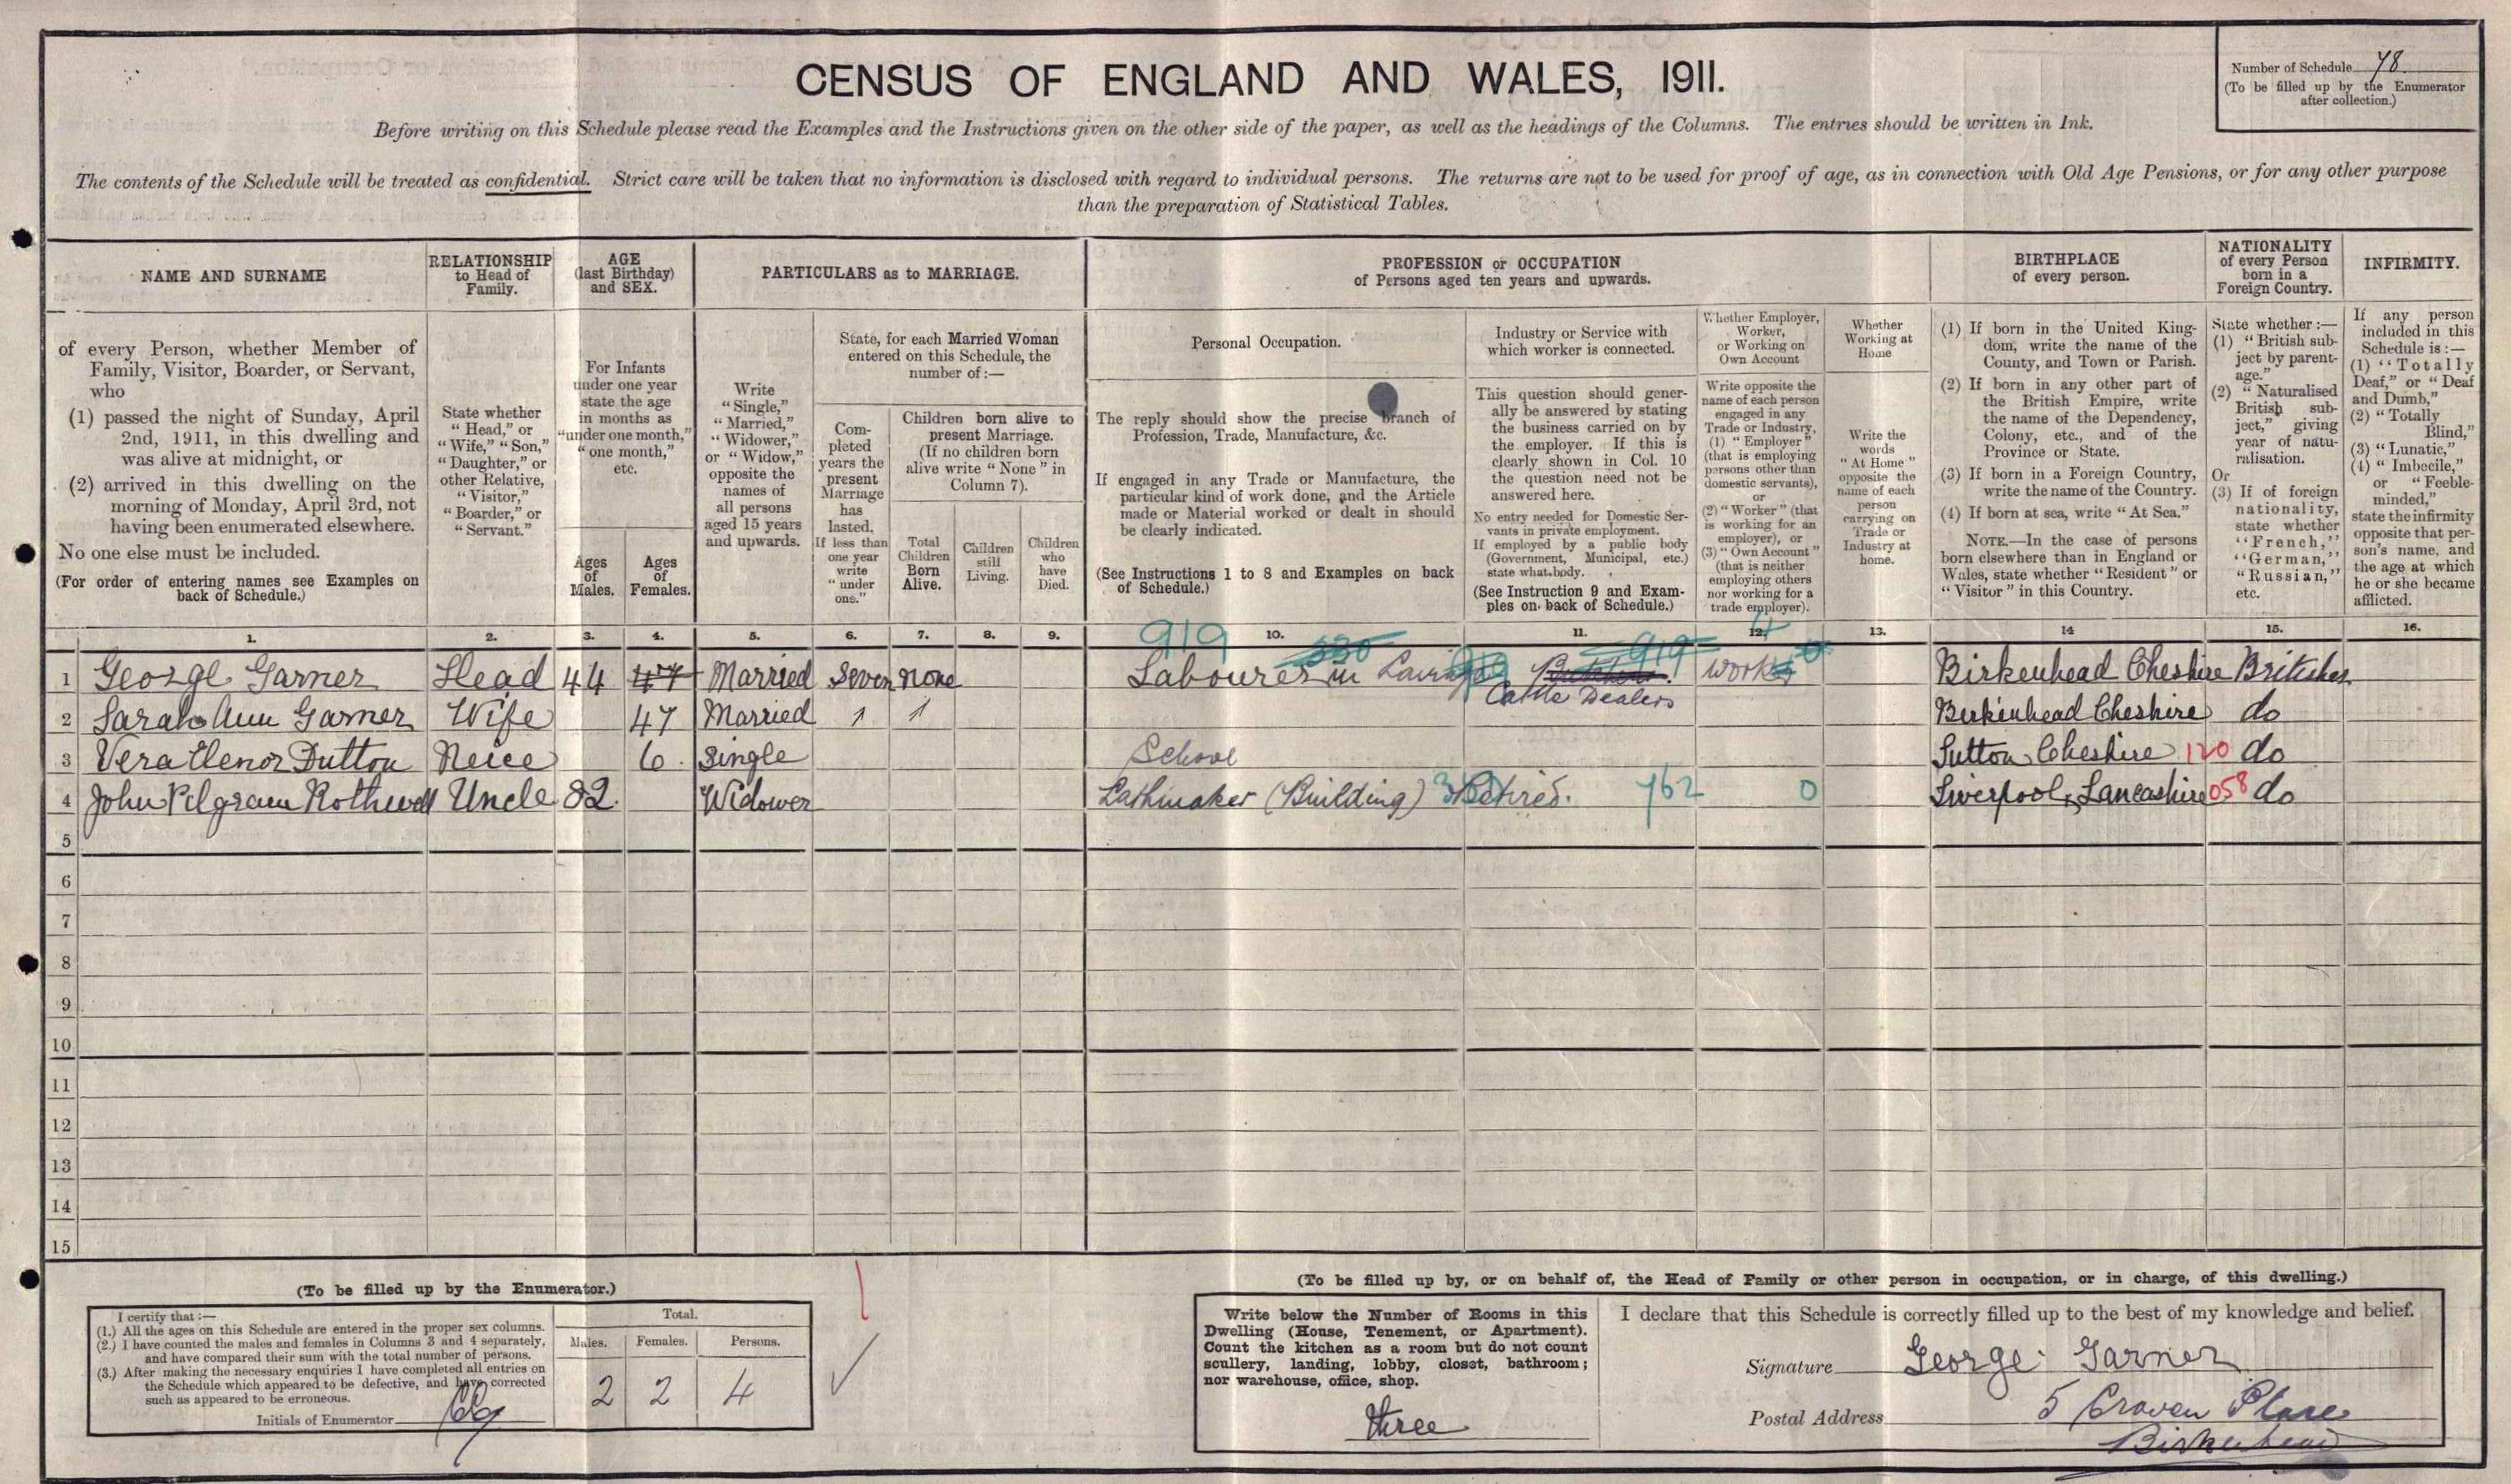 CENSUS OF ENGLAND AND WALES, 1911.
Number of Schedule 78
(To be filled up by the Enumerator
after collection.)
Before writing on this Schedule please read the Examples and the Instructions given on the other side of the paper, as well as the headings of the Columns. The entries should be written in Ink.
The contents of the Schedule will be treated as confidential. Strict care will be taken that no information is disclosed with regard to individual persons. The returns are not to be used for proof of age, as in connection with Old Age Pensions, or for any other purpose
than the preparation of Statistical Tables.
NAME AND SURNAME
of every Person, whether Member of
Family, Visitor, Boarder, or Servant,
who
(1) passed the night of Sunday, April
2nd, 1911, in this dwelling and
was alive at midnight, or
(2) arrived in this dwelling on the
morning of Monday, April 3rd, not
having been enumerated elsewhere.
No one else must be included.
(For order of entering names see Examples on
back of Schedule.)
RELATIONSHIP
to Head of
Family.
State whether
"Head," or
"Wife," "Son,"
"Daughter," or
other Relative,
"Visitor,"
"Boarder," or
"Servant."
AGE
(last Birthday)
and SEX.
For Infants
under one year
state the age
in months as
"under one month,"
"one month,"
etc.
Ages
of
Males.
Ages
of
Females.
PARTICULARS as to MARRIAGE.
Write
"Single,"
"Married,"
"Widower,"
or "Widow,"
opposite the
names of
all persons
aged 15 years
and upwards.
State, for each Married Woman
entered on this Schedule, the
number of :—
Com-
pleted
years the
present
Marriage
has
lasted.
If less than
one year
write
"under
one."
Children born alive to
present Marriage.
(If no children born
alive write "None" in
Column 7).
Total
Children
Born
Alive.
Children
still
Living.
Children
who
have
Died.
PROFESSION or OCCUPATION
of Persons aged ten years and upwards.
Personal Occupation.
The reply should show the precise branch of
Profession, Trade, Manufacture, &c.
If engaged in any Trade or Manufacture, the
particular kind of work done, and the Article
made or Material worked or dealt in should
be clearly indicated.
(See Instructions 1 to 8 and Examples on back
of Schedule.)
Industry or Service with
which worker is connected.
This question should gener-
ally be answered by stating
the business carried on by
the employer. If this is
clearly shown in Col. 10
the question need not be
answered here.
No entry needed for Domestic Ser-
vants in private employment.
If employed by a public body
(Government, Municipal, etc.)
state what body.
(See Instruction 9 and Exam-
ples on back of Schedule.)
Whether Employer,
Worker,
or Working on
Own Account
Write opposite the
name of each person
engaged in any
Trade or Industry,
(1) "Employer"
(that is employing
persons other than
domestic servants),
or
(2) "Worker" (that
is working for an
employer), or
(3) "Own Account"
(that is neither
employing others
nor working for a
trade employer).
Whether
Working at
Home
Write the
words
"At Home"
opposite the
name of each
person
carrying on
Trade or
Industry at
home.
BIRTHPLACE
of every person.
(1) If born in the United King-
dom, write the name of the
County, and Town or Parish.
(2) If born in any other part of
the British Empire, write
the name of the Dependency,
Colony, etc., and of the
Province or State.
(3) If born in a Foreign Country,
write the name of the Country.
(4) If born at sea, write "At Sea."
NOTE.—In the case of persons
born elsewhere than in England or
Wales, state whether "Resident" or
"Visitor" in this Country.
NATIONALITY
of every Person
born in a
Foreign Country.
State whether :—
(1) "British sub-
ject by parent-
age."
(2) "Naturalised
British sub-
ject," giving
year of natu-
ralisation.
Or
(3) If of foreign
nationality,
state whether
"French,"
"German,"
"Russian,"
etc.
INFIRMITY.
If any person
included in this
Schedule is :—
(1) "Totally
Deaf," or "Deaf
and Dumb,"
(2) "Totally
Blind,"
(3) "Lunatic,"
(4) "Imbecile,"
or "Feeble-
minded,"
state the infirmity
opposite that per-
son's name, and
the age at which
he or she became
afflicted.
1. 2. 3. 4. 5. 6. 7. 8. 9. 919 10. 330 11. 919 12. 13. 14 15. 16.
1 George Garner Head 44 47 Married Seven none Labourer in Worker Birkenhead Cheshire Britisher
Cattle Dealers
2 Sarah Ann Garner Wife 47 Married 1 1 Birkenhead Cheshire do
3 Vera Elenor Dutton Neice 6. Single School Sutton Cheshire 120 do
4 John Pilgram Rothwell Uncle 82. Widower Lathmaker (Building) Retired. 762 0 Liverpool, Lancashire 058 do
5
6
7
8
9
10
11
12
13
14
15
(To be filled up by the Enumerator.)
I certify that :—
(1.) All the ages on this Schedule are entered in the proper sex columns.
(2.) I have counted the males and females in Columns 3 and 4 separately,
and have compared their sum with the total number of persons.
(3.) After making the necessary enquiries I have completed all entries on
the Schedule which appeared to be defective, and have corrected
such as appeared to be erroneous.
Initials of Enumerator
Total.
Males. Females. Persons.
2 2 4
(To be filled up by, or on behalf of, the Head of Family or other person in occupation, or in charge, of this dwelling.)
Write below the Number of Rooms in this
Dwelling (House, Tenement, or Apartment).
Count the kitchen as a room but do not count
scullery, landing, lobby, closet, bathroom;
nor warehouse, office, shop.
three
I declare that this Schedule is correctly filled up to the best of my knowledge and belief.
Signature George Garner
Postal Address 5 Craven Place
Birkenhead